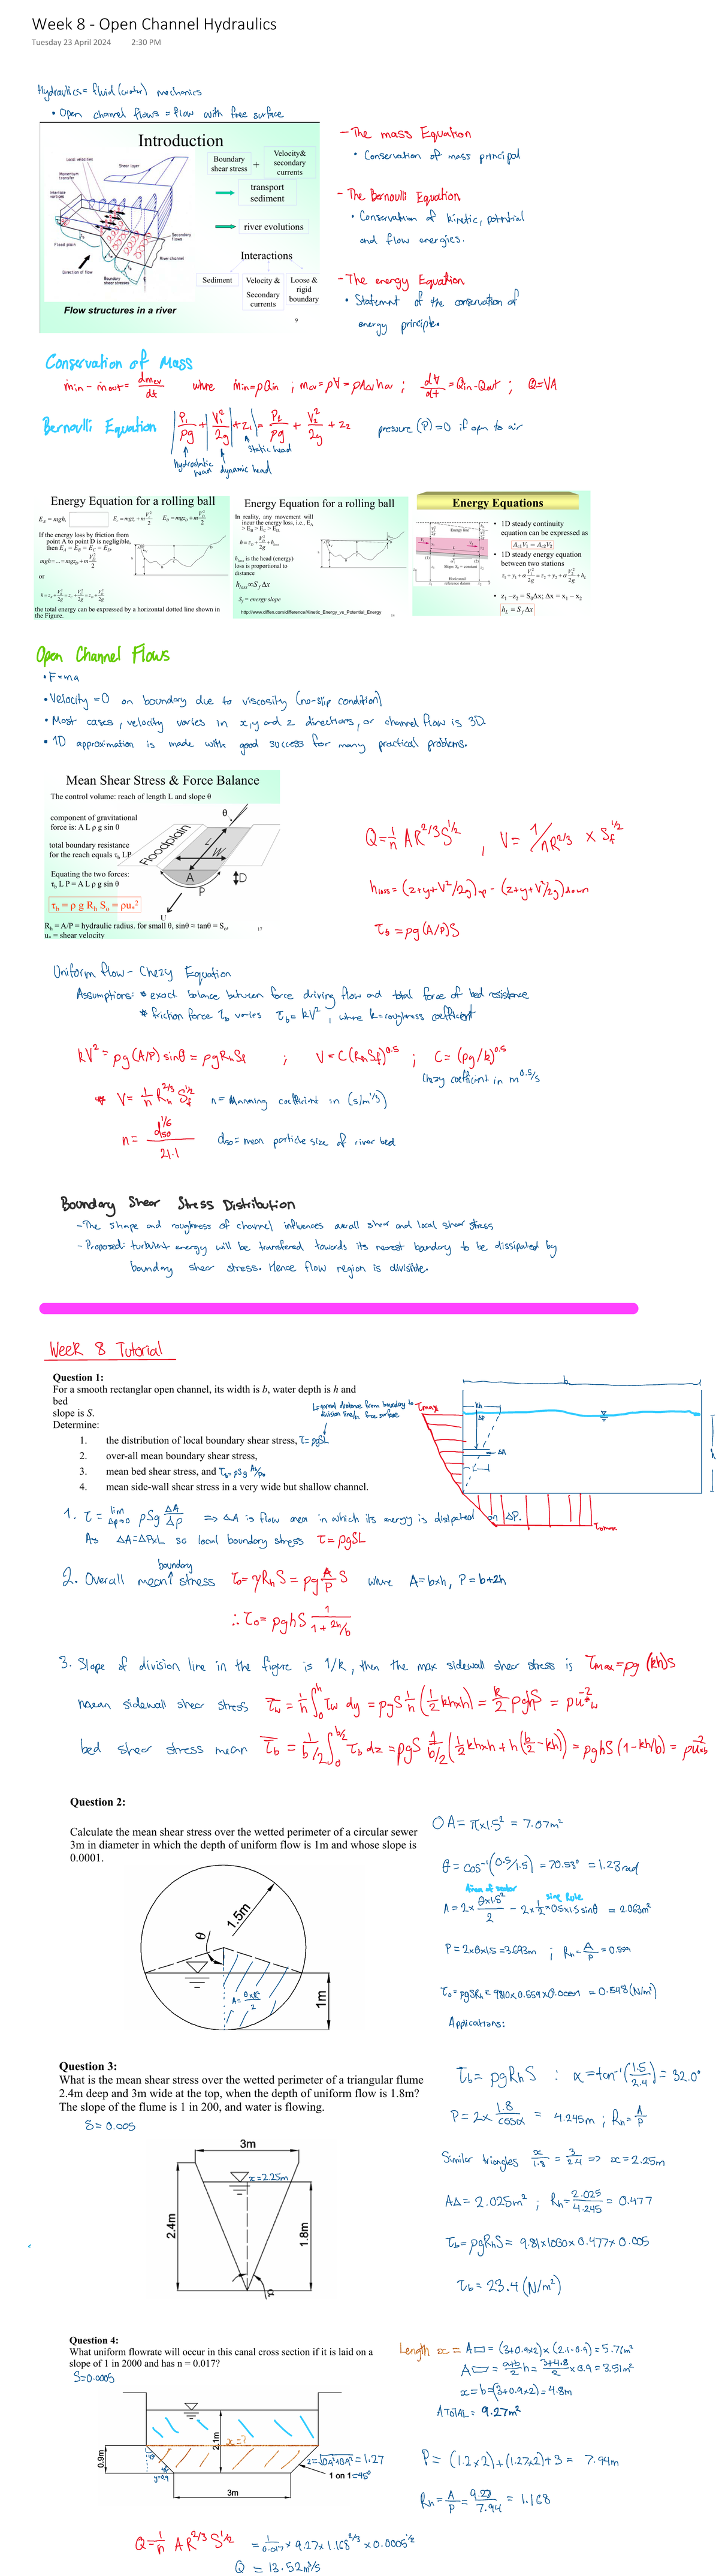 Week 8 - Open Channel Hydraulics
Tuesday 23 April 2024 2:30 PM
Hydraulics = fluid (water) mechanics
• Open channel flows = flow with free surface
Introduction
Local velocities
Shear layer
Momentum transfer
Interface vortices
Secondary flows
Flood plain
River channel
Direction of flow
Boundary shear stresses
Flow structures in a river
Boundary shear stress + Velocity & secondary currents
transport sediment
river evolutions
Interactions
Sediment
Velocity & Secondary currents
Loose & rigid boundary
9
- The mass Equation
• Conservation of mass principal
- The Bernoulli Equation
• Conservation of kinetic, potential
and flow energies.
- The energy Equation
• Statement of the conservation of
energy principle.
Conservation of Mass
ṁin - ṁout = dmcv/dt where ṁin = ρQin ; mcv = ρV = ρAcv hcv ; dV/dt = Qin - Qout ; Q=VA
Bernoulli Equation P₁/ρg + V₁²/2g + z₁ = P₂/ρg + V₂²/2g + z₂ pressure (P) = 0 if open to air
hydrostatic head dynamic head static head
Energy Equation for a rolling ball
If the energy loss by friction from
point A to point D is negligible,
then E_A = E_B = E_C = E_D,
or
the total energy can be expressed by a horizontal dotted line shown in
the Figure.
Energy Equation for a rolling ball
In reality, any movement will
incur the energy loss, i.e., E_A
> E_B > E_C > E_D
h_loss is the head (energy)
loss is proportional to
distance
h_loss ∝ S_f Δx
S_f = energy slope
http://www.diffen.com/difference/Kinetic_Energy_vs_Potential_Energy
Energy Equations
• 1D steady continuity
equation can be expressed as
• 1D steady energy equation
between two stations
• z₁ – z₂ = S₀Δx; Δx = x₁ – x₂
h_L = S_f Δx
Open Channel Flows
• F=ma
• Velocity = 0 on boundary due to viscosity (no-slip condition)
• Most cases, velocity varies in x,y and z directions, or channel flow is 3D.
• 1D approximation is made with good success for many practical problems.
Mean Shear Stress & Force Balance
The control volume: reach of length L and slope θ
component of gravitational
force is: A L ρ g sin θ
total boundary resistance
for the reach equals τb LP
Equating the two forces:
τb L P = A L ρ g sin θ
τb = ρ g Rh So = ρu*²
Rh = A/P = hydraulic radius. for small θ, sinθ ≈ tanθ = So.
u* = shear velocity
17
Floodplain
θ
L
W
A
D
P
U
Q = 1/n AR^2/3 S^1/2 , V = 1/nR^2/3 × Sf^1/2
hloss = (z+y+V²/2g)up - (z+y+V²/2g)down
τb = ρg(A/P)S
Uniform flow - Chezy Equation
Assumptions: * exact balance between force driving flow and total force of bed resistance
* friction force τb varies τb = kV², where k = roughness coefficient
kV² = ρg(A/P) sinθ = ρgRhSf ; V = C(RhSf)^0.5 ; C = (ρg/k)^0.5
Chezy coefficient in m^0.5/s
* V = 1/n Rh^2/3 Sf^1/2 n = Manning coefficient in (s/m^1/3)
n = d50^1/6 / 21.1 d50 = mean particle size of river bed
Boundary Shear Stress Distribution
- The shape and roughness of channel influences overall shear and local shear stress
- Proposed: turbulent energy will be transfered towards its nearest boundary to be dissipated by
boundary shear stress. Hence flow region is divisible.
Week 8 Tutorial
Question 1:
For a smooth rectanglar open channel, its width is b, water depth is h and
bed
slope is S.
Determine:
1. the distribution of local boundary shear stress, τ = ρgSL
2. over-all mean boundary shear stress,
3. mean bed shear stress, and τb = ρSg Ab/Pb
4. mean side-wall shear stress in a very wide but shallow channel.
L = normal distance from boundary to
division line/or free surface
τmax
b
kh
ΔP
ΔA
L
h
τbmax
1. τ = lim Δp→0 ρSg ΔA/ΔP ⇒ ΔA is flow area in which its energy is disipated on ΔP.
As ΔA = ΔP×L so local boundary stress τ = ρgSL
2. Overall mean boundary stress τ₀ = γRhS = ρg A/P S where A = b×h, P = b+2h
∴ τ₀ = ρghS 1/(1+2h/b)
3. Slope of division line in the figure is 1/k, then the max sidewall shear stress is τmax = ρg (kh)S
mean sidewall shear stress τ̄w = 1/h ∫₀ʰ τw dy = ρgS 1/h (1/2 kh×h) = k/2 ρghS = ρū*w²
bed shear stress mean τ̄b = 1/(b/2) ∫₀^(b/2) τb dz = ρgS 1/(b/2) (1/2 kh×h + h(b/2 - kh)) = ρghS (1 - kh/b) = ρū*b²
Question 2:
Calculate the mean shear stress over the wetted perimeter of a circular sewer
3m in diameter in which the depth of uniform flow is 1m and whose slope is
0.0001.
1.5m
θ
A = θ×R²/2
1m
O A = π×1.5² = 7.07m²
θ = cos⁻¹(0.5/1.5) = 70.53° = 1.23rad
Area of sector
sine Rule
A = 2× θ×1.5²/2 - 2×1/2×0.5×1.5 sinθ = 2.063m²
P = 2×θ×1.5 = 3.693m ; Rh = A/P = 0.559
τ₀ = ρgSRh = 9810×0.559×0.0001 = 0.548 (N/m²)
Applications:
Question 3:
What is the mean shear stress over the wetted perimeter of a triangular flume
2.4m deep and 3m wide at the top, when the depth of uniform flow is 1.8m?
The slope of the flume is 1 in 200, and water is flowing.
S = 0.005
3m
x=2.25m
2.4m
1.8m
α
τb = ρgRhS : α = tan⁻¹(1.5/2.4) = 32.0°
P = 2× 1.8/cosα = 4.245m ; Rh = A/P
Similar triangles x/1.8 = 3/2.4 ⇒ x = 2.25m
AΔ = 2.025m² ; Rh = 2.025/4.245 = 0.477
τb = ρgRhS = 9.81×1000×0.477×0.005
τb = 23.4 (N/m²)
Question 4:
What uniform flowrate will occur in this canal cross section if it is laid on a
slope of 1 in 2000 and has n = 0.017?
S=0.0005
2.1m
x=?
0.9m
y=0.9
z = √0.9²+0.9² = 1.27
1 on 1 =45°
3m
Length x = A▭ = (3+0.9×2)×(2.1-0.9) = 5.76m²
A▭ = (a+b)/2 h = (3+4.8)/2 ×0.9 = 3.51m²
x = b = (3+0.9×2) = 4.8m
ATOTAL = 9.27m²
P = (1.2×2)+(1.27×2)+3 = 7.94m
Rh = A/P = 9.27/7.94 = 1.168
Q = 1/n AR^2/3 S^1/2 = 1/0.017 × 9.27×1.168^2/3 × 0.0005^1/2
Q = 13.52m³/s